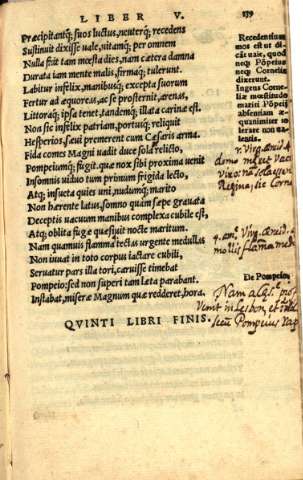 LIBER V. 139
Præcipitantq́; suos luctus, neuterq; recedens
Sustinuit dixisse uale, uitamq́; per omnem
Nulla fuit tam mœsta dies, nam cætera damna
Durata iam mente malis, firmaq́; tulerunt.
Labitur infelix, manibusq́; excepta suorum
Fertur ad æquoreas, ac se prosternit, arenas,
Littoraq́; ipsa tenet, tandemq́; illata carina est.
Non sic infelix patriam, portusq́; reliquit
Hesperios, sæui premerent cum Cæsaris arma.
Fida comes Magni uadit duce sola relicto,
Pompeiumq́; fugit. quæ nox tibi proxima uenit
Insomnis uiduo tum primum frigida lecto,
Atq; insueta quies uni, nudumq́; marito
Non hærente latus, somno quàm sæpe grauata
Deceptis vacuum manibus complexa cubile est,
Atq; oblita fugæ quæsiuit nocte maritum.
Nam quamuis flamma tectas urgente medullas
Non iuuat in toto corpus iactare cubili,
Seruatur pars illa tori, caruisse timebat
Pompeio: sed non superi tam læta parabant.
Instabat, miseræ Magnum quæ redderet, hora.
QVINTI LIBRI FINIS.
Recedentisu
mos est ut di
cãt uale, quod
neq́; Põpeius
neq́; Cornelia
dixerunt.
Ingens Corne
liæ mœstitudo
mariti Põpeij
absentiam æ-
quanimiter
ferre non ua-
lentis.
Virg. Æneid. 4
Regina, sic
4. Virg. Æneid. 4
mollis flamma med
De Pompeio
Nam
Venit in Lesbon, et
Pompeius